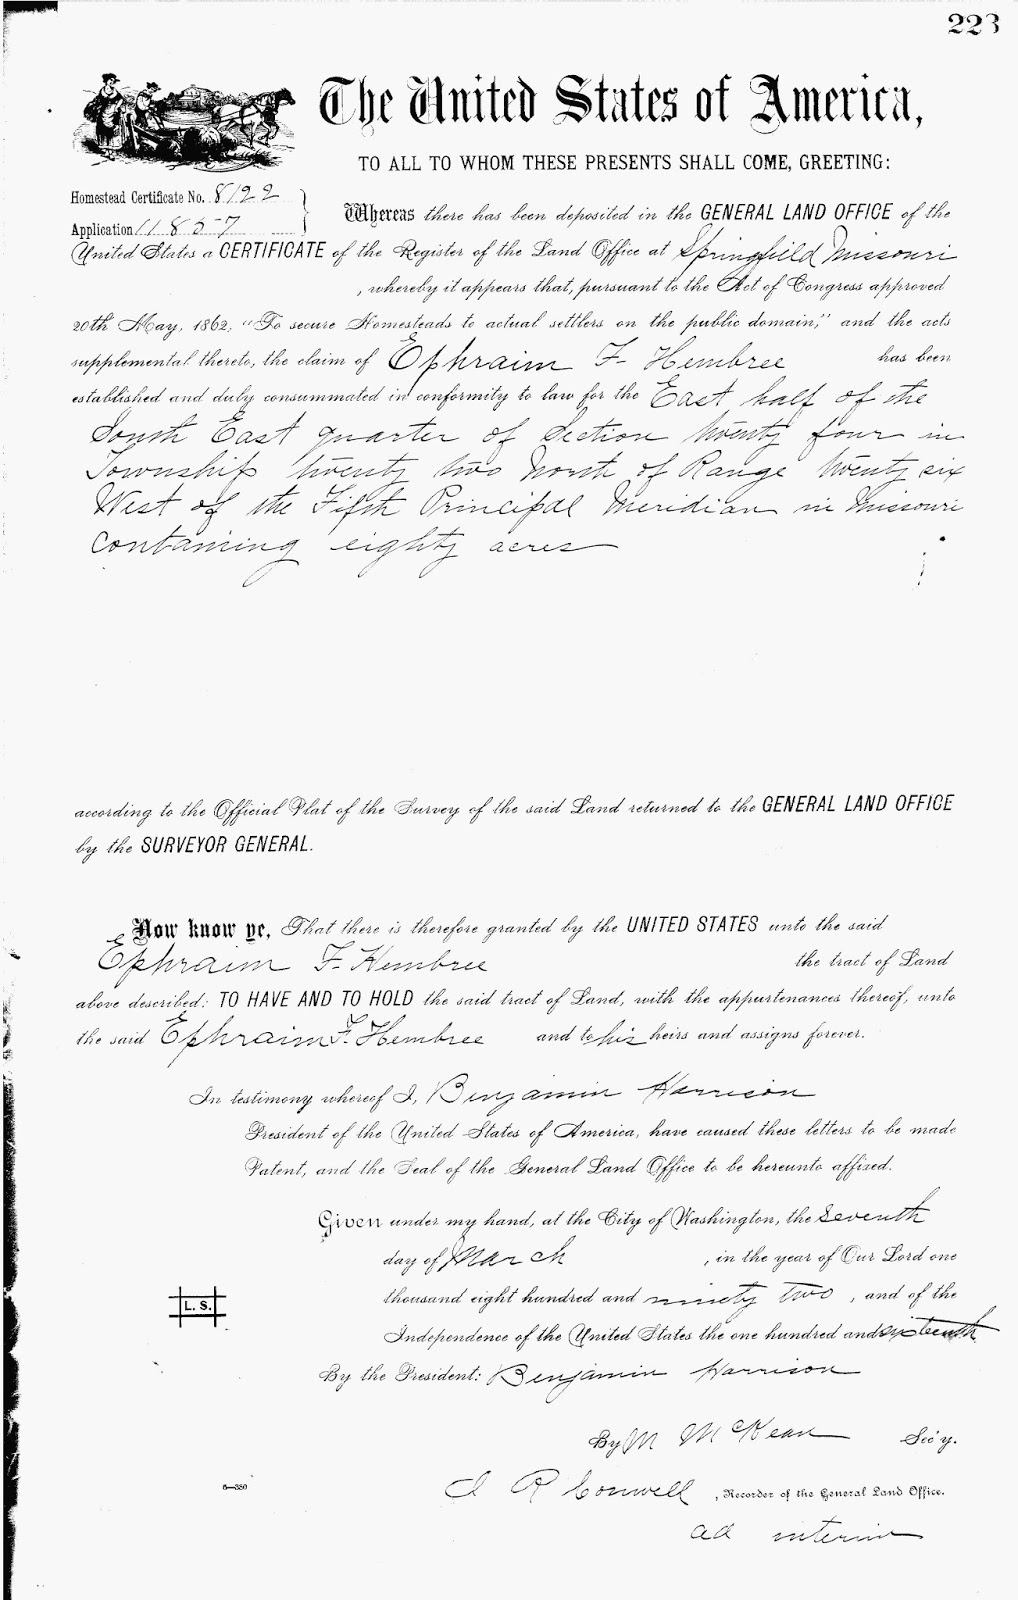 223
The United States of America,
TO ALL TO WHOM THESE PRESENTS SHALL COME, GREETING:
Homestead Certificate No. 8122
Application 11857
Whereas there has been deposited in the GENERAL LAND OFFICE of the
United States a CERTIFICATE of the Register of the Land Office at Springfield Missouri
, whereby it appears that, pursuant to the Act of Congress approved
20th May, 1862, "To secure Homesteads to actual settlers on the public domain," and the acts
supplemental thereto, the claim of Ephraim F. Hembree has been
established and duly consummated in conformity to law for the East half of the
South East quarter of Section twenty four in
Township twenty two North of Range twenty six
West of the Fifth Principal Meridian in Missouri
containing eighty acres
according to the Official Plat of the Survey of the said Land returned to the GENERAL LAND OFFICE
by the SURVEYOR GENERAL.
Now know ye, That there is therefore granted by the UNITED STATES unto the said
Ephraim F. Hembree the tract of Land
above described: TO HAVE AND TO HOLD the said tract of Land, with the appurtenances thereof, unto
the said Ephraim F. Hembree and to his heirs and assigns forever.
In testimony whereof I, Benjamin Harrison
President of the United States of America, have caused these letters to be made
Patent, and the Seal of the General Land Office to be hereunto affixed.
Given under my hand, at the City of Washington, the seventh
day of March , in the year of Our Lord one
thousand eight hundred and ninety two , and of the
L. S.
Independence of the United States the one hundred and sixteenth
By the President: Benjamin Harrison
By M McKean Sec'y.
6—350
I R Conwell , Recorder of the General Land Office.
ad interim